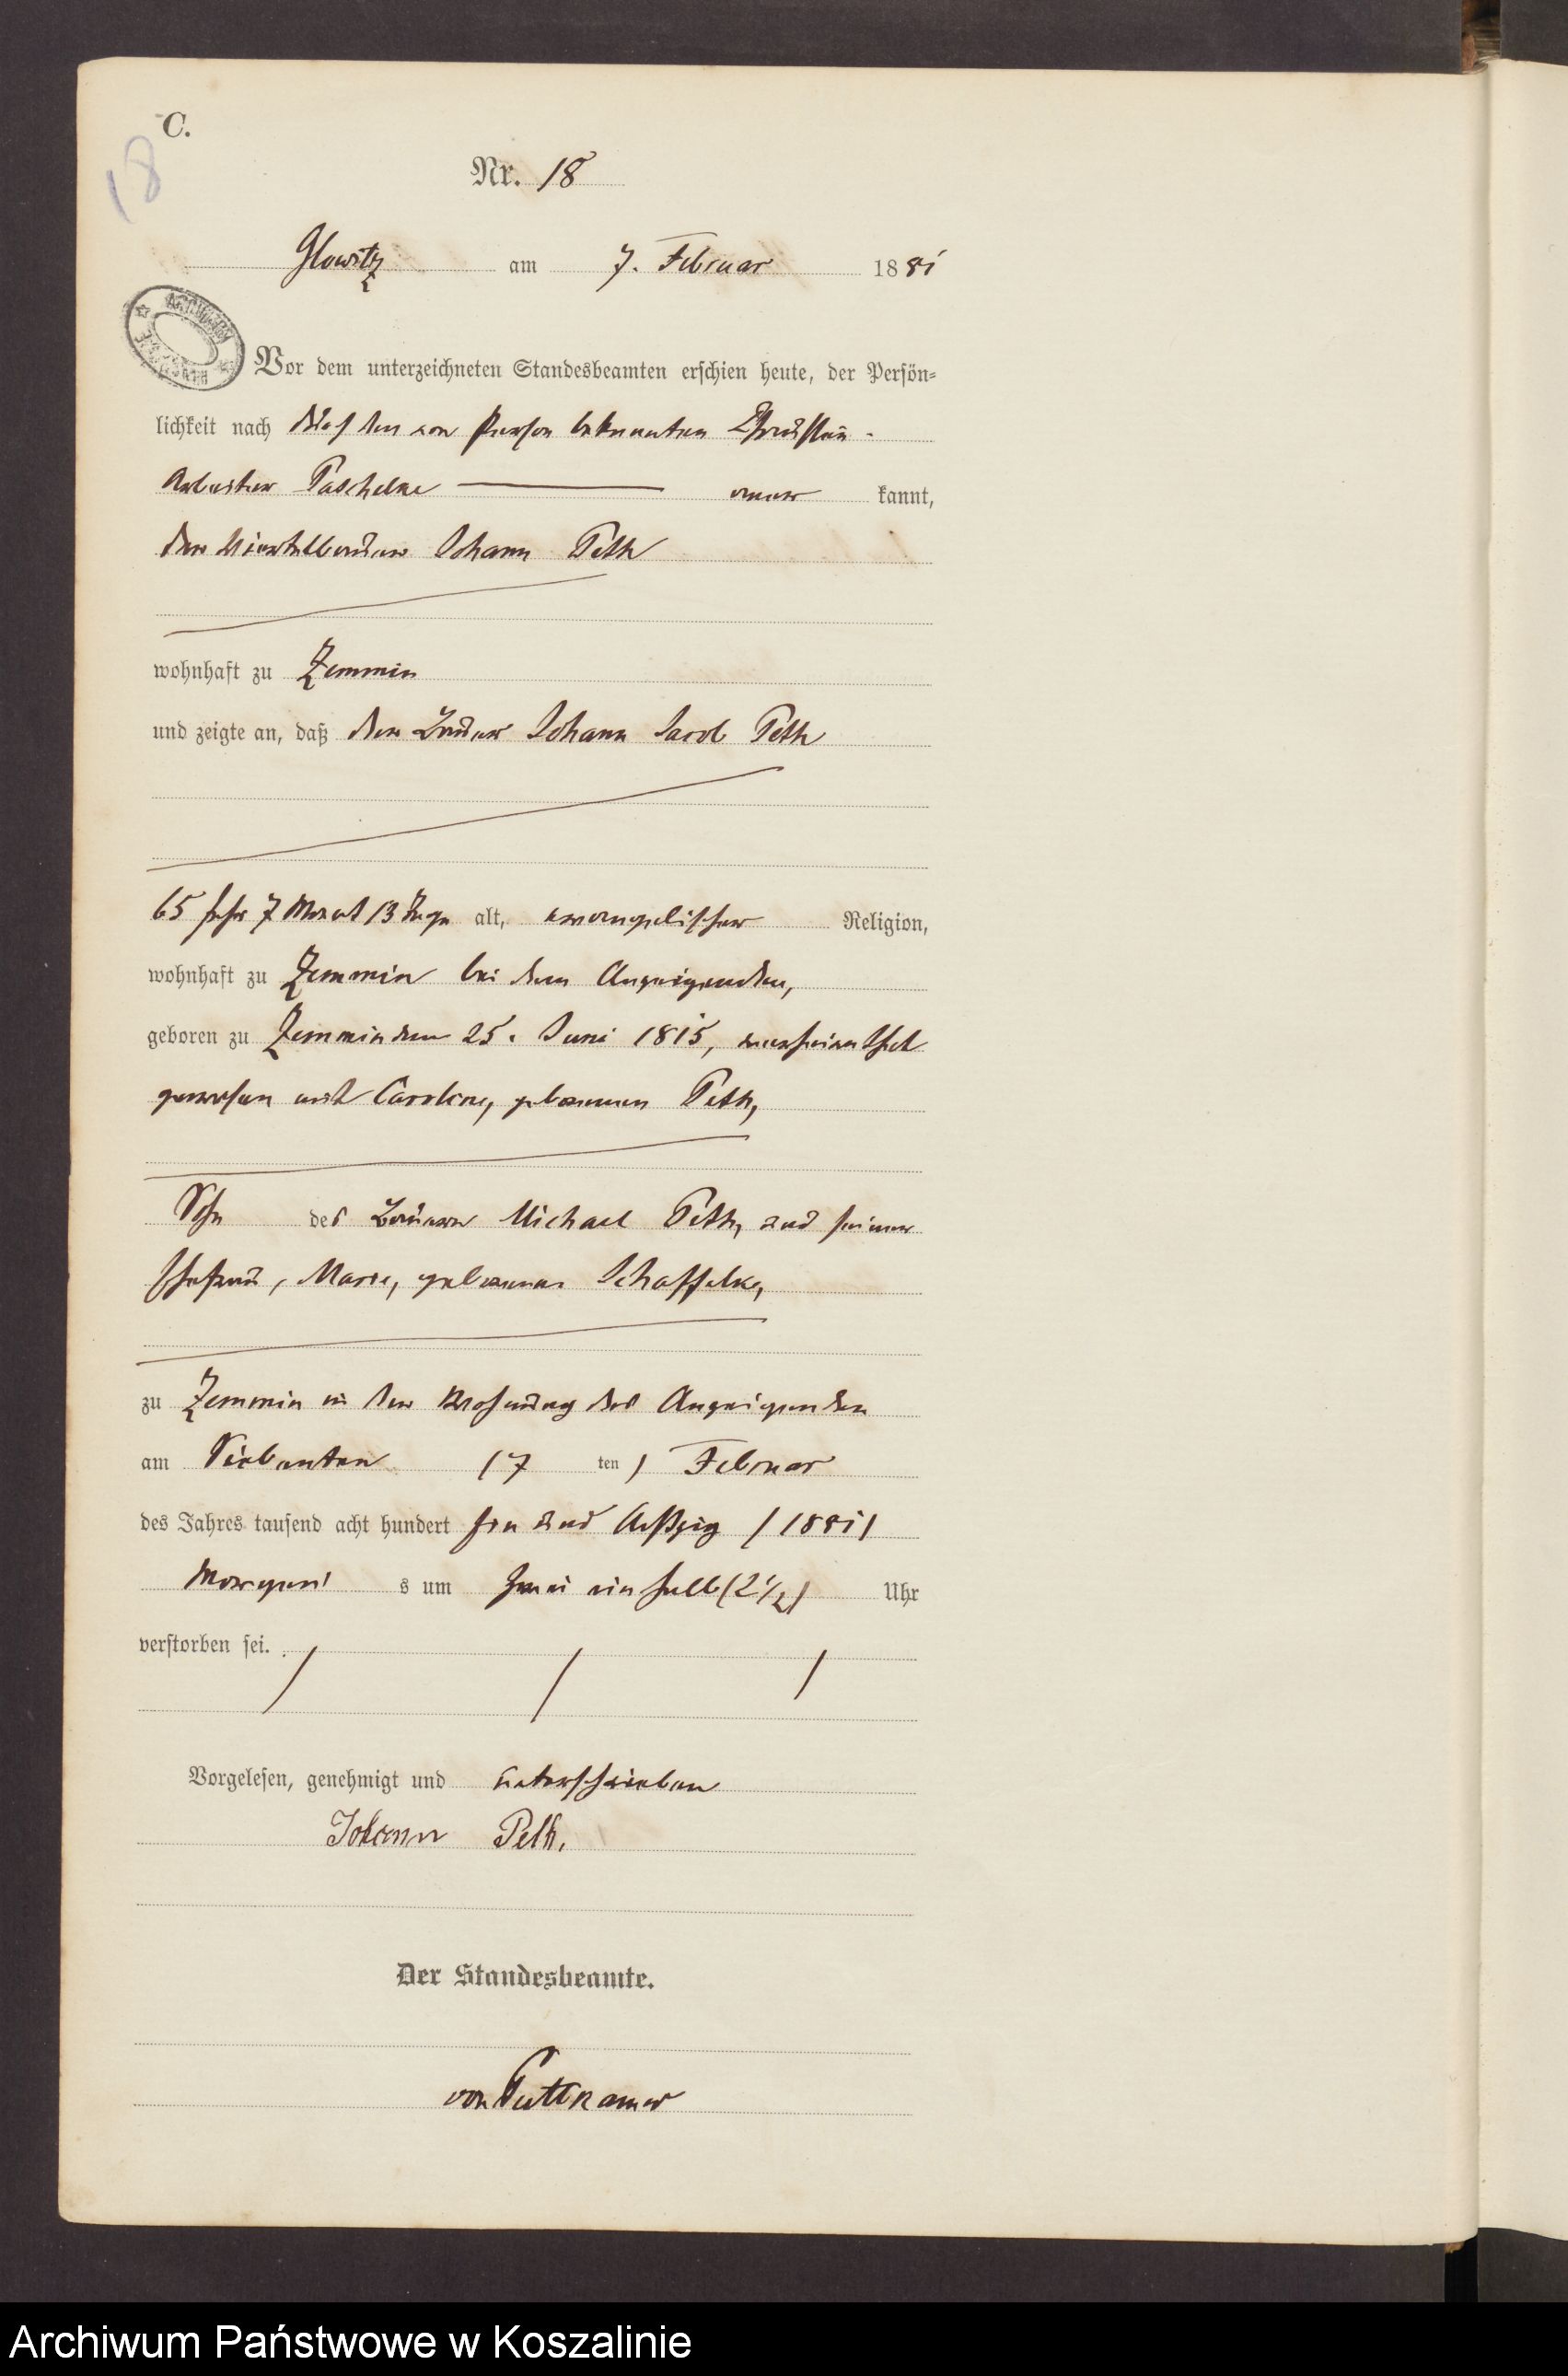 C.
18
Nr. 18
Glowitz am 7. Februar 1881
Vor dem unterzeichneten Standesbeamten erschien heute, der Persön-
lichkeit nach durch den von Person bekannten
Arbeiter Paschelke aner kannt,
der Viertelbauer Johann Peth
wohnhaft zu Zemmin
und zeigte an, daß der Bauer Johann Jacob Peth
65 Jahr 7 Monat 13 Tage alt, evangelischer Religion,
wohnhaft zu Zemmin bei dem Anzeigenden,
geboren zu Zemmin den 25. Juni 1815, verheirathet
gewesen mit Caroline, geborenen Peth,
Sohn des Bauern Michael Peth, und seiner
Ehefrau, Marie, geborenen Schaffelke,
zu Zemmin in der Wohnung des Anzeigenden
am Siebenten (7 ten) Februar
des Jahres tausend acht hundert ein und Achtzig (1881)
Morgens s um zwei ein halb (2½) Uhr
verstorben sei.
Vorgelesen, genehmigt und unterschrieben
Johann Peth.
Der Standesbeamte.
von Puttkamer
Archiwum Państwowe w Koszalinie